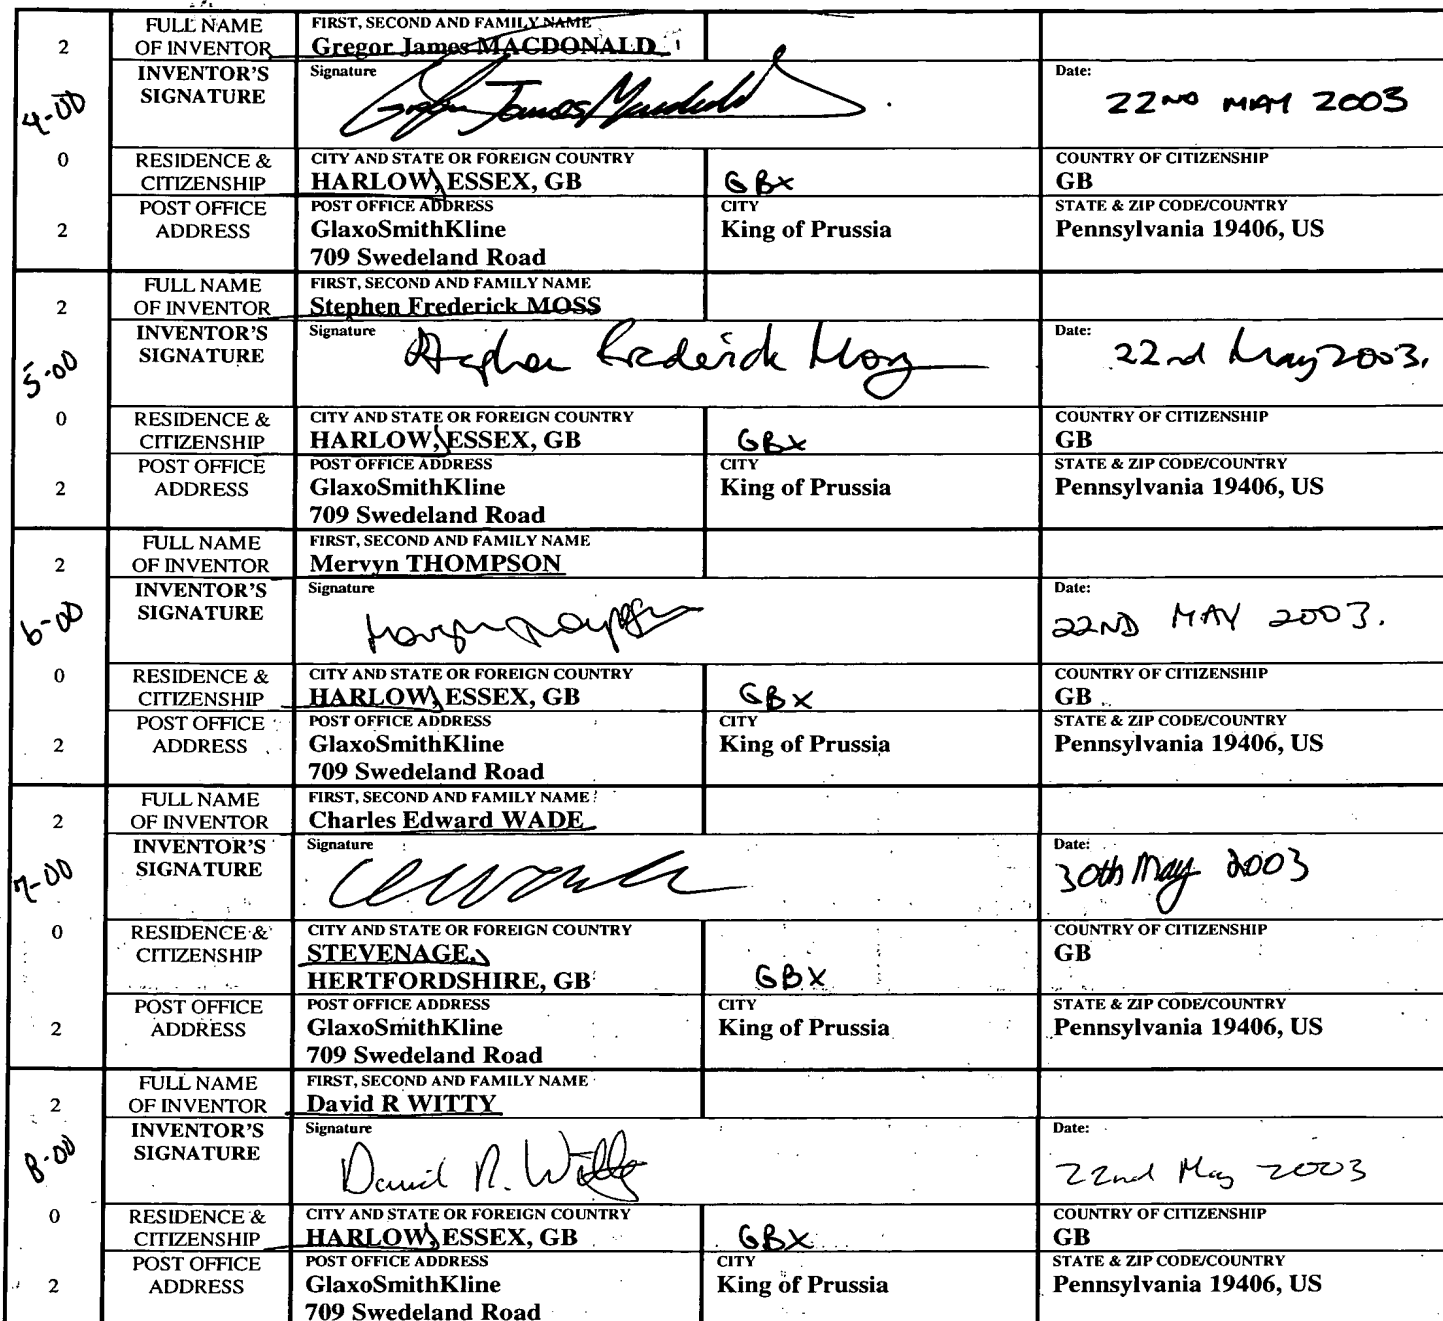 2
FULL NAME OF INVENTOR
FIRST, SECOND AND FAMILY NAME
Gregor James MACDONALD
4-00
INVENTOR'S SIGNATURE
Signature
Gregor James Macdonald
Date:
22ND MAY 2003
0
RESIDENCE & CITIZENSHIP
CITY AND STATE OR FOREIGN COUNTRY
HARLOW, ESSEX, GB
GBX
COUNTRY OF CITIZENSHIP
GB
2
POST OFFICE ADDRESS
POST OFFICE ADDRESS
GlaxoSmithKline
709 Swedeland Road
CITY
King of Prussia
STATE & ZIP CODE/COUNTRY
Pennsylvania 19406, US
2
FULL NAME OF INVENTOR
FIRST, SECOND AND FAMILY NAME
Stephen Frederick MOSS
5-00
INVENTOR'S SIGNATURE
Signature
Stephen Frederick Moss
Date:
22nd May 2003.
0
RESIDENCE & CITIZENSHIP
CITY AND STATE OR FOREIGN COUNTRY
HARLOW, ESSEX, GB
GBX
COUNTRY OF CITIZENSHIP
GB
2
POST OFFICE ADDRESS
POST OFFICE ADDRESS
GlaxoSmithKline
709 Swedeland Road
CITY
King of Prussia
STATE & ZIP CODE/COUNTRY
Pennsylvania 19406, US
2
FULL NAME OF INVENTOR
FIRST, SECOND AND FAMILY NAME
Mervyn THOMPSON
6-00
INVENTOR'S SIGNATURE
Signature
Date:
22ND MAY 2003.
0
RESIDENCE & CITIZENSHIP
CITY AND STATE OR FOREIGN COUNTRY
HARLOW, ESSEX, GB
GBX
COUNTRY OF CITIZENSHIP
GB
2
POST OFFICE ADDRESS
POST OFFICE ADDRESS
GlaxoSmithKline
709 Swedeland Road
CITY
King of Prussia
STATE & ZIP CODE/COUNTRY
Pennsylvania 19406, US
2
FULL NAME OF INVENTOR
FIRST, SECOND AND FAMILY NAME
Charles Edward WADE
7-00
INVENTOR'S SIGNATURE
Signature
Date:
30th May 2003
0
RESIDENCE & CITIZENSHIP
CITY AND STATE OR FOREIGN COUNTRY
STEVENAGE,
HERTFORDSHIRE, GB
GBX
COUNTRY OF CITIZENSHIP
GB
2
POST OFFICE ADDRESS
POST OFFICE ADDRESS
GlaxoSmithKline
709 Swedeland Road
CITY
King of Prussia
STATE & ZIP CODE/COUNTRY
Pennsylvania 19406, US
2
FULL NAME OF INVENTOR
FIRST, SECOND AND FAMILY NAME
David R WITTY
8-00
INVENTOR'S SIGNATURE
Signature
David R. Witty
Date:
22nd May 2003
0
RESIDENCE & CITIZENSHIP
CITY AND STATE OR FOREIGN COUNTRY
HARLOW, ESSEX, GB
GBX
COUNTRY OF CITIZENSHIP
GB
2
POST OFFICE ADDRESS
POST OFFICE ADDRESS
GlaxoSmithKline
709 Swedeland Road
CITY
King of Prussia
STATE & ZIP CODE/COUNTRY
Pennsylvania 19406, US